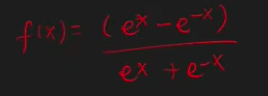 f(x) = (e^x - e^{-x}) / (e^x + e^{-x})